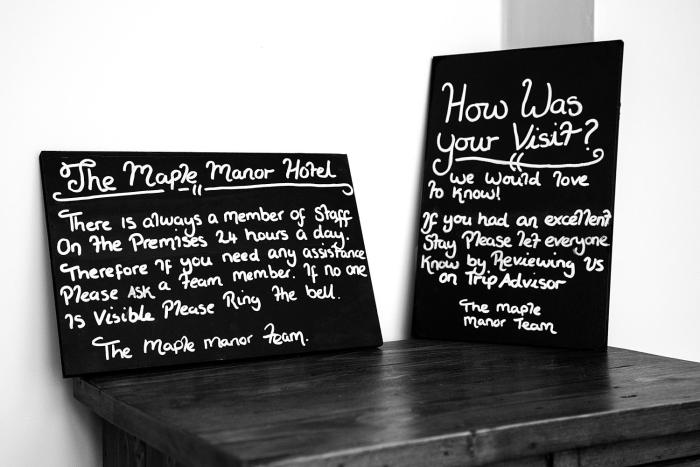 The Maple Manor Hotel
There is always a member of Staff
On the Premises 24 hours a day.
Therefore if you need any assistance
Please Ask a team member. If no one
is Visible Please Ring the bell.
The Maple Manor Team.
How Was
your Visit?
we would love
to know!
If you had an excellent
Stay Please let everyone
Know by Reviewing Us
on Trip Advisor
The Maple
Manor Team